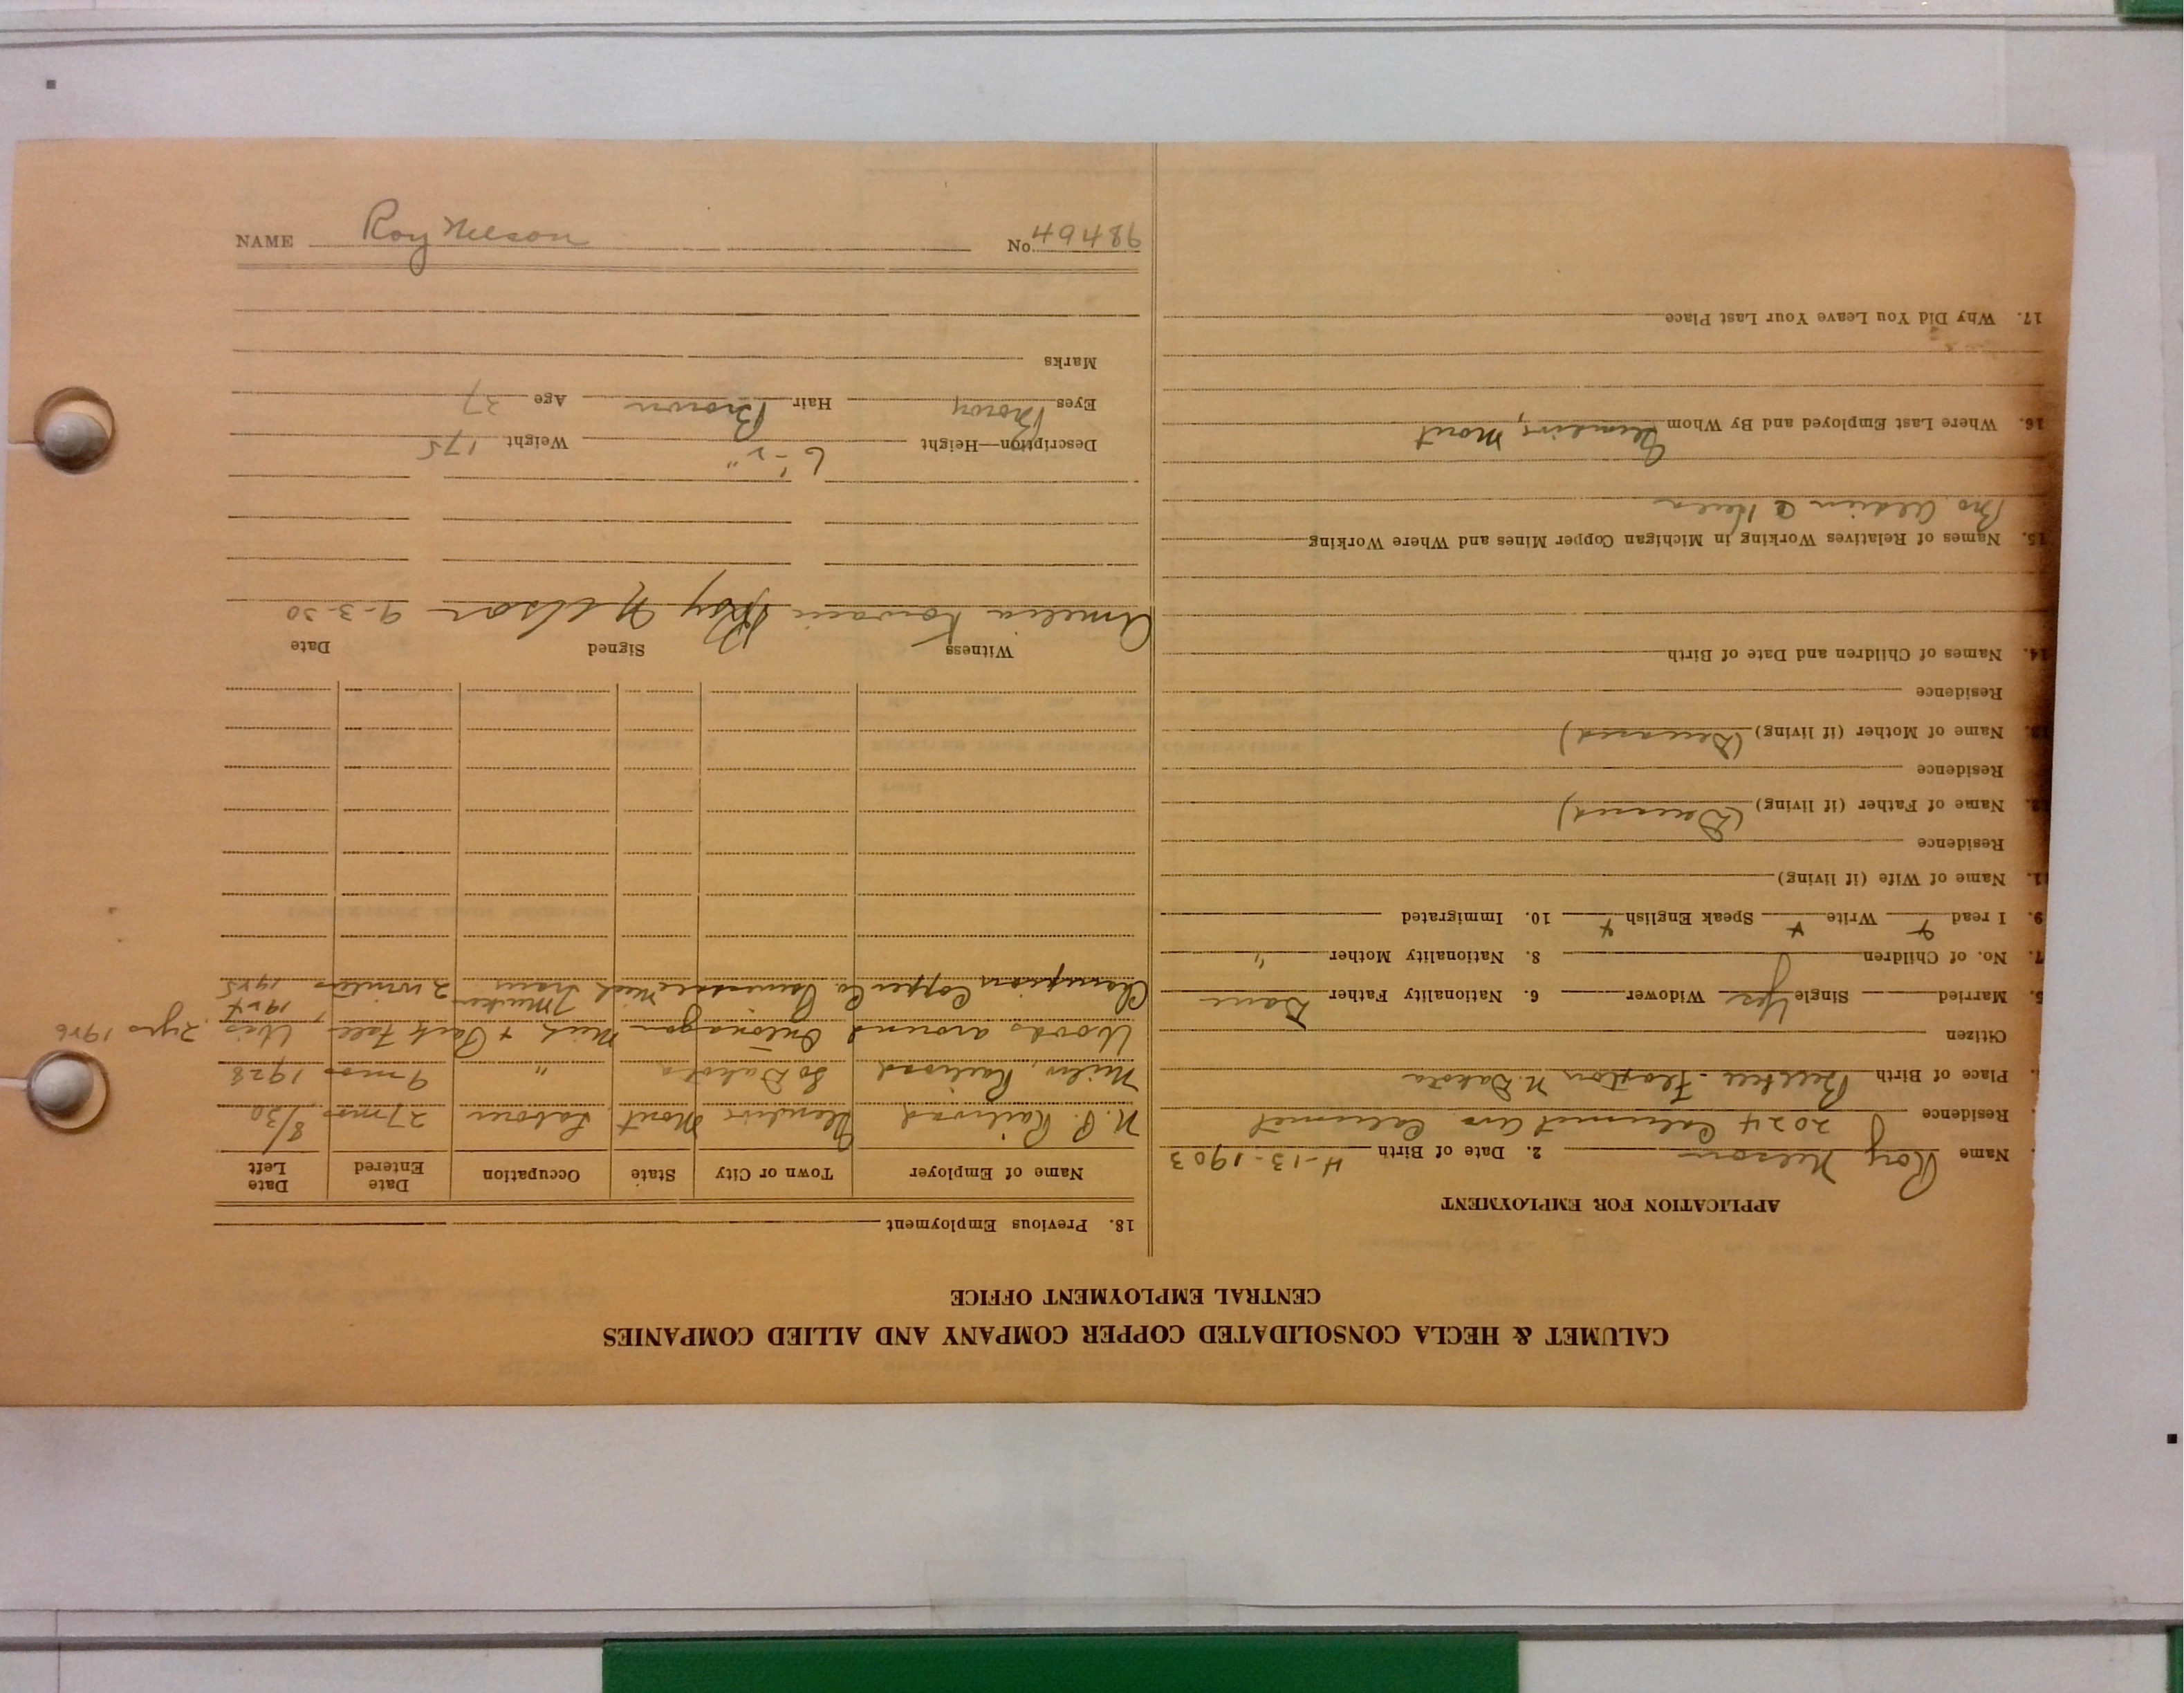 CALUMET & HECLA CONSOLIDATED COPPER COMPANY AND ALLIED COMPANIES
CENTRAL EMPLOYMENT OFFICE
APPLICATION FOR EMPLOYMENT
Name Roy Nelson 2. Date of Birth 4-13-1903
Residence 2024 Calumet Ave Calumet
Place of Birth Flaxton N. Dakota
Citizen
5. Married Single Yes Widower 6. Nationality Father Dane
7. No. of Children 8. Nationality Mother "
9. I read Write Speak English 10. Immigrated
11. Name of Wife (if living)
Residence
12. Name of Father (if living) (Deceased)
Residence
13. Name of Mother (if living) (Deceased)
Residence
14. Names of Children and Date of Birth
15. Names of Relatives Working in Michigan Copper Mines and Where Working
Bro @ Hecla
16. Where Last Employed and By Whom Glendive, Mont
17. Why Did You Leave Your Last Place
18. Previous Employment
Name of Employer Town or City State Occupation Date Entered Date Left
N. P. Railroad Glendive Mont Laborer 27 mos 8/30
Milw. Railroad So Dakota " 9 mos 1928
Woods around Ontonagon Mich + Park Falls, Wis 2 yrs 1926
Champion Copper Co. Painesdale Mich Trammer Mucker 2 winters 1924 1925
Witness Signed Date
Amelia Roy Nelson 9-3-30
Description—Height 6'-2" Weight 175
Eyes Brown Hair Brown Age 27
Marks
NAME Roy Nelson No. 49486